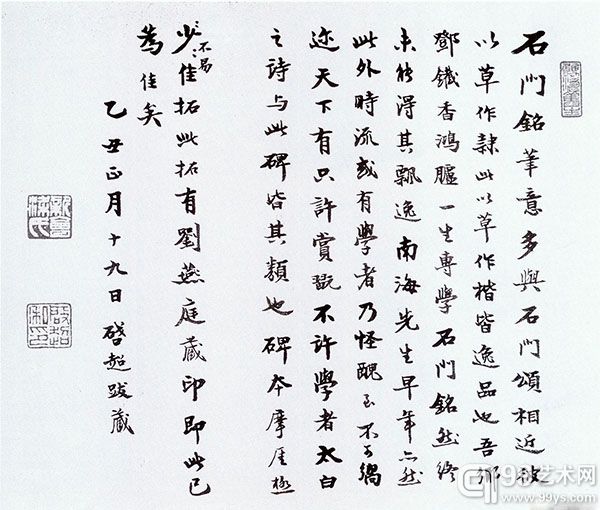 石門銘筆意多與石門頌相近彼
以草作隸此以草作楷皆逸品也吾鄉
鄧鐵香鴻臚一生專學石門銘然終
未能得其飄逸南海先生早年亦然
此外時流或有學者乃怪醜至不可嚮
迩天下有只許賞翫不許學者太白
之詩與此碑皆其類也碑本摩厓極
不易
少佳拓此拓有劉燕庭藏印即此已
為佳矣
乙丑正月十九日啓超跋藏
新會梁氏
啓超私印
99艺术网
www.99ys.com